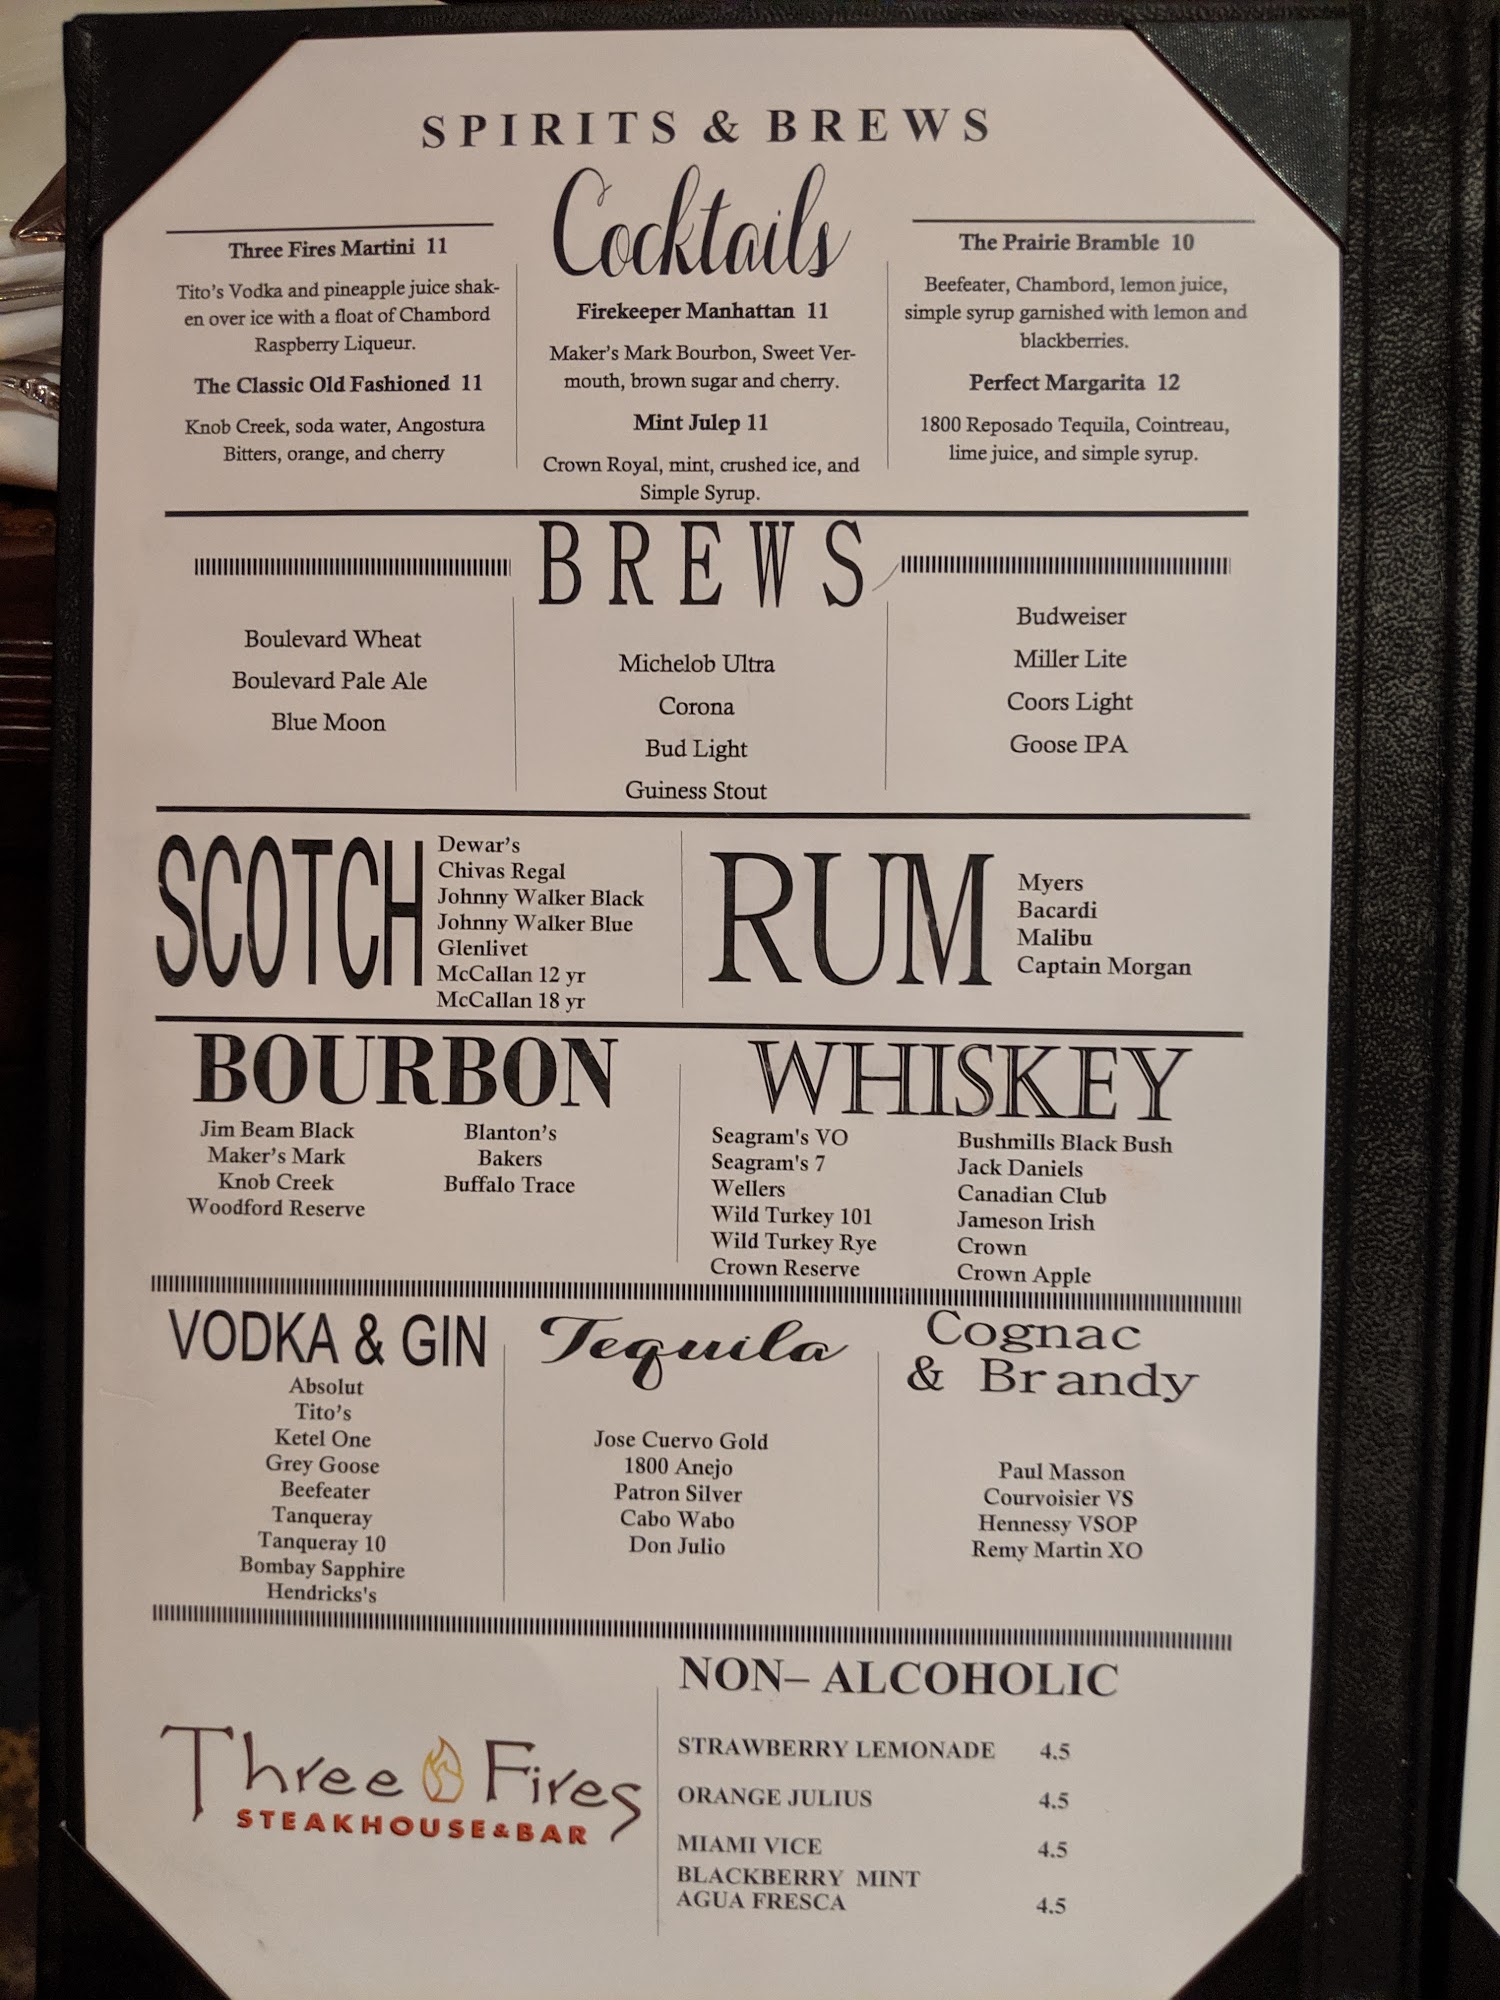 SPIRITS & BREWS
Cocktails
Three Fires Martini 11
Tito's Vodka and pineapple juice shak-
en over ice with a float of Chambord
Raspberry Liqueur.
The Classic Old Fashioned 11
Knob Creek, soda water, Angostura
Bitters, orange, and cherry
Firekeeper Manhattan 11
Maker's Mark Bourbon, Sweet Ver-
mouth, brown sugar and cherry.
Mint Julep 11
Crown Royal, mint, crushed ice, and
Simple Syrup.
The Prairie Bramble 10
Beefeater, Chambord, lemon juice,
simple syrup garnished with lemon and
blackberries.
Perfect Margarita 12
1800 Reposado Tequila, Cointreau,
lime juice, and simple syrup.
BREWS
Boulevard Wheat
Boulevard Pale Ale
Blue Moon
Michelob Ultra
Corona
Bud Light
Guiness Stout
Budweiser
Miller Lite
Coors Light
Goose IPA
SCOTCH
Dewar's
Chivas Regal
Johnny Walker Black
Johnny Walker Blue
Glenlivet
McCallan 12 yr
McCallan 18 yr
RUM
Myers
Bacardi
Malibu
Captain Morgan
BOURBON
Jim Beam Black
Maker's Mark
Knob Creek
Woodford Reserve
Blanton's
Bakers
Buffalo Trace
WHISKEY
Seagram's VO
Seagram's 7
Wellers
Wild Turkey 101
Wild Turkey Rye
Crown Reserve
Bushmills Black Bush
Jack Daniels
Canadian Club
Jameson Irish
Crown
Crown Apple
VODKA & GIN
Absolut
Tito's
Ketel One
Grey Goose
Beefeater
Tanqueray
Tanqueray 10
Bombay Sapphire
Hendricks's
Tequila
Jose Cuervo Gold
1800 Anejo
Patron Silver
Cabo Wabo
Don Julio
Cognac
& Brandy
Paul Masson
Courvoisier VS
Hennessy VSOP
Remy Martin XO
Three Fires
STEAKHOUSE & BAR
NON– ALCOHOLIC
STRAWBERRY LEMONADE 4.5
ORANGE JULIUS 4.5
MIAMI VICE 4.5
BLACKBERRY MINT
AGUA FRESCA 4.5